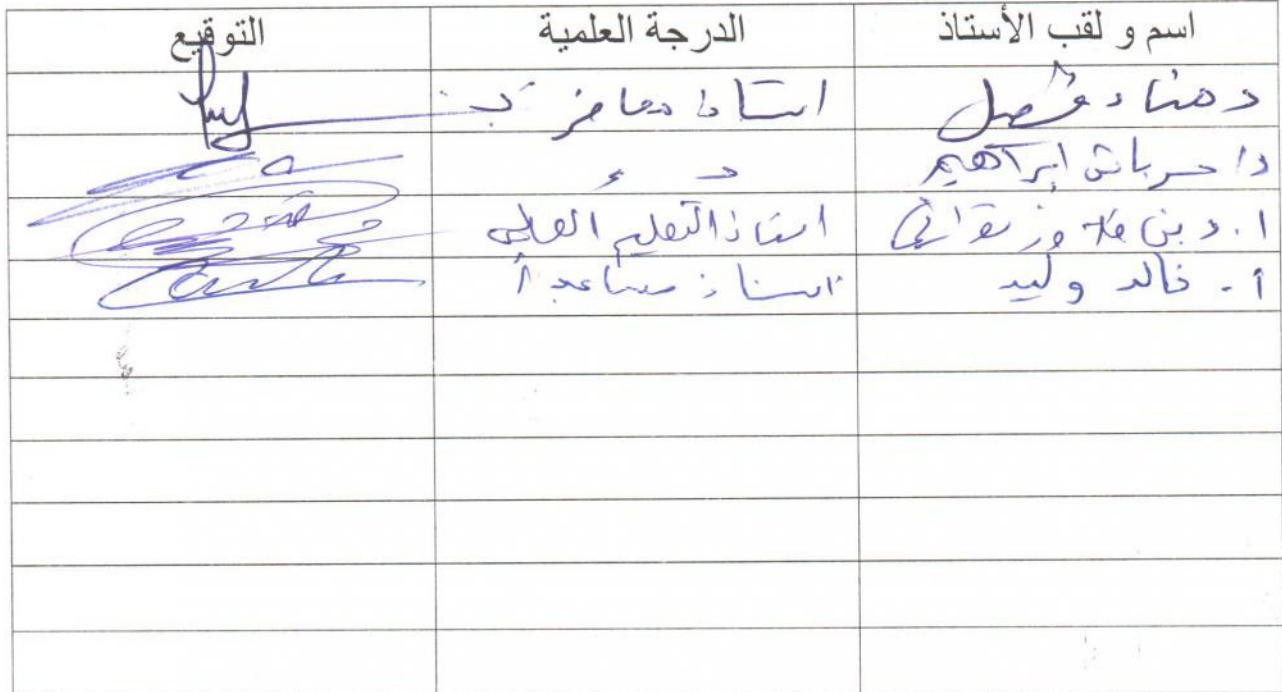 اسم و لقب الأستاذ الدرجة العلمية التوقيع
د هناد فيصل استاذ محاضر ب
د/ حرباش ابراهيم
ا.د بن استاذ التعليم العالي
أ. خالد وليد استاذ مساعد أ